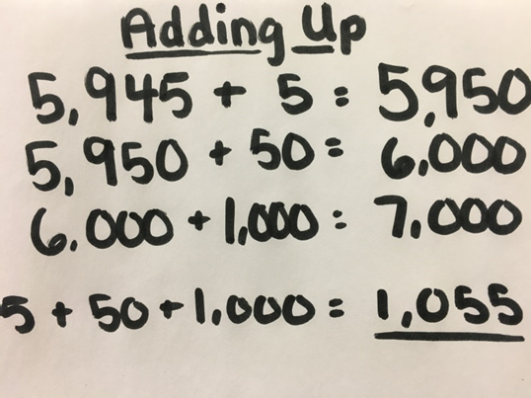 Adding Up
5,945 + 5 = 5,950
5,950 + 50 = 6,000
6,000 + 1,000 = 7,000
5 + 50 + 1,000 = 1,055